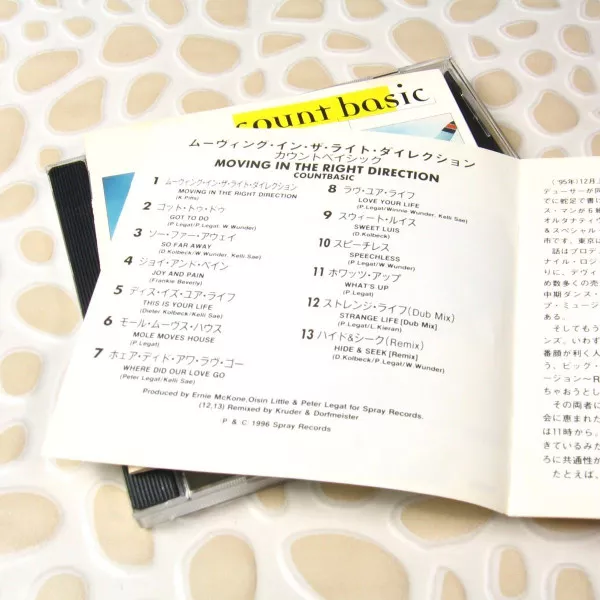 count basic
ムーヴィング・イン・ザ・ライト・ダイレクション
カウントベイシック
MOVING IN THE RIGHT DIRECTION
COUNTBASIC
1 ムーヴィング・イン・ザ・ライト・ダイレクション
MOVING IN THE RIGHT DIRECTION
(K.Pitts)
2 ゴット・トゥ・ドゥ
GOT TO DO
(P.Legat/P.Legat/W.Wunder)
3 ソー・ファー・アウェイ
SO FAR AWAY
(D.Kolbeck/W.Wunder, Kelli Sae)
4 ジョイ・アンド・ペイン
JOY AND PAIN
(Frankie Beverly)
5 ディス・イズ・ユア・ライフ
THIS IS YOUR LIFE
(Dieter Kolbeck/Kelli Sae)
6 モール・ムーヴス・ハウス
MOLE MOVES HOUSE
(P.Legat)
7 ホェア・ディド・アワ・ラヴ・ゴー
WHERE DID OUR LOVE GO
(Peter Legat/Kelli Sae)
8 ラヴ・ユア・ライフ
LOVE YOUR LIFE
(P.Legat/Winne Wunder, Kelli Sae)
9 スウィート・ルイス
SWEET LUIS
(D.Kolbeck)
10 スピーチレス
SPEECHLESS
(P.Legat/P.Legat/W.Wunder)
11 ホワッツ・アップ
WHAT'S UP
(P.Legat)
12 ストレンジ・ライフ(Dub Mix)
STRANGE LIFE [Dub Mix]
(P.Legat/L.Kieran)
13 ハイド&シーク(Remix)
HIDE & SEEK [Remix]
(D.Kolbeck/P.Legat/W.Wunder)
Produced by Ernie McKone,Oisin Little & Peter Legat for Spray Records.
(12,13) Remixed by Kruder & Dorfmeister
P & C 1996 Spray Records
('95年)12月、
デューサーが同
でに蛇足で書い
ス・マンが6組
オルタナティヴ
&スペシャル・
市です。東京に
話はプロデ
ナイル・ロジ
りに、デヴィ
め数多くの売
中期ダンス・
プ・ミュージ
ある。
そしてもう
ンズ、いわず
番顔が利く人
う、ビッグ・
ージョン〜R
ちゃおうとし
その両者に
会に恵まれた
は11時から、
きているみた
ろに共通性が
たとえば、